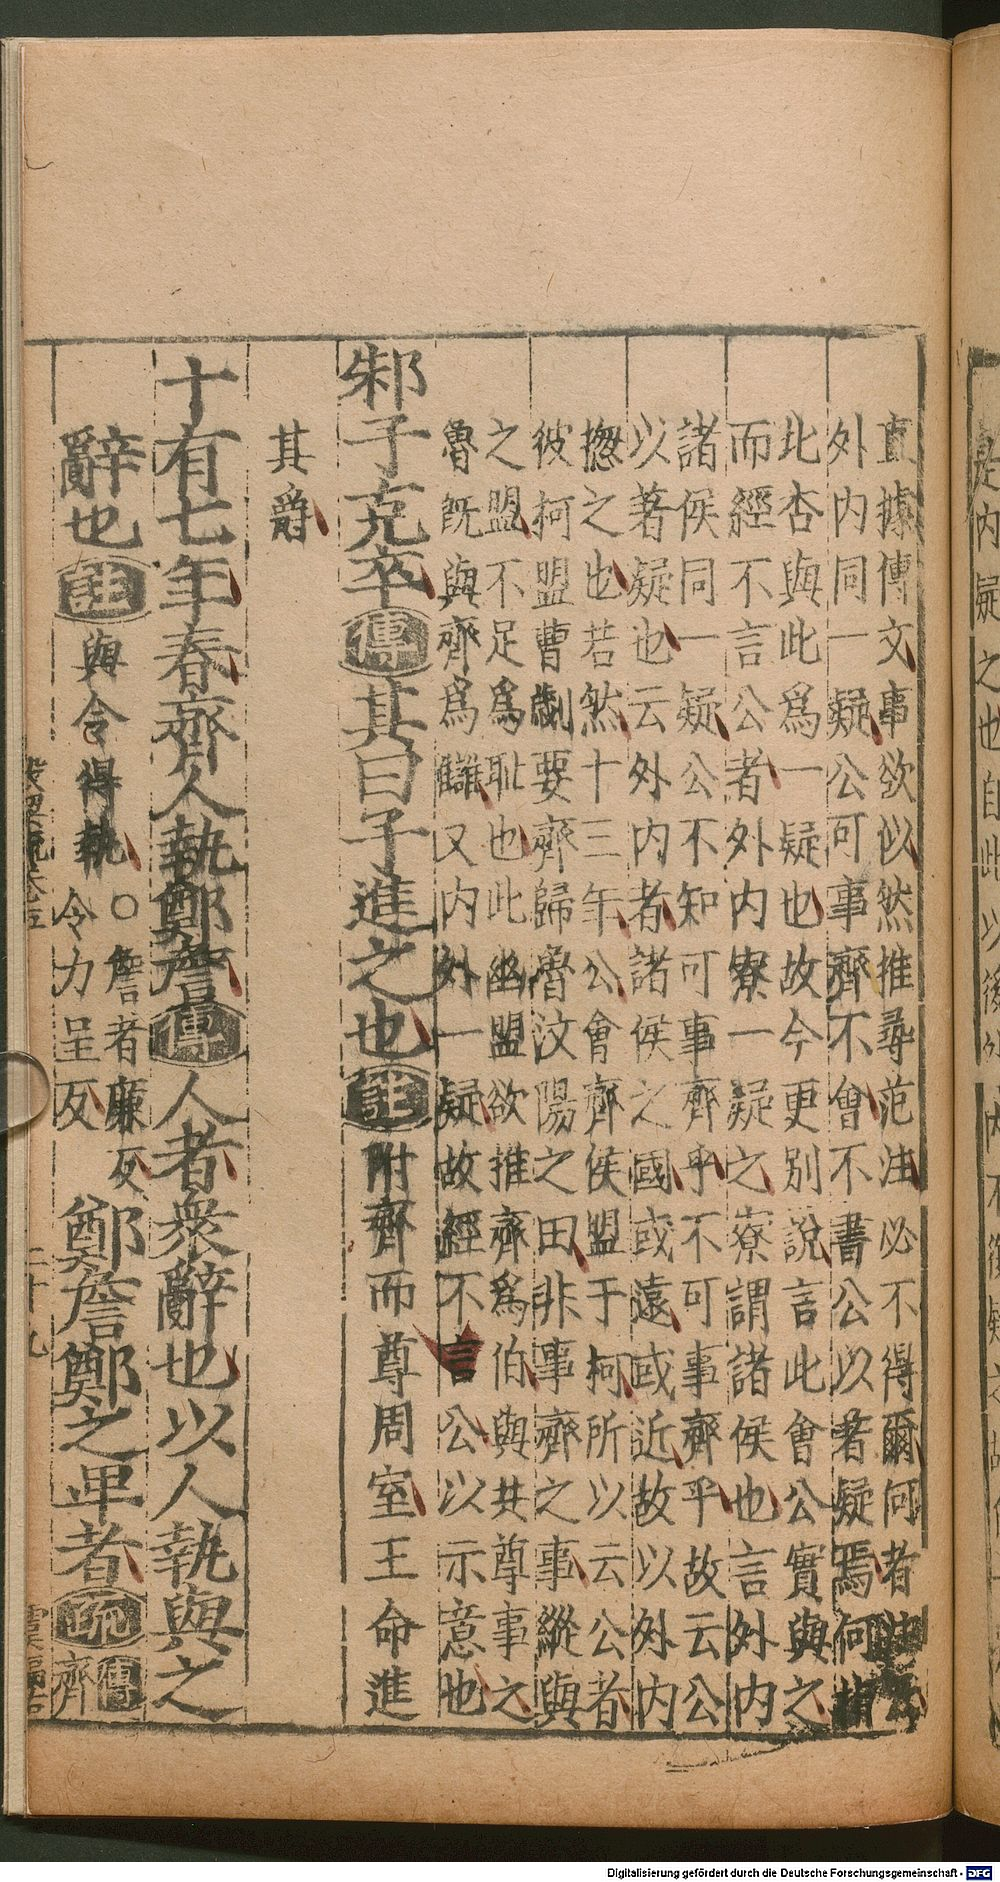 直據傳文事欲似然推尋范注必不得爾何者
外内同一疑公可事齊不會不書公以著疑焉何
北杏與此爲一疑也故今更別說言此會公實與之
而經不言公者外内寮一疑之寮謂諸侯也言外内
諸侯同一疑公不知可事齊乎不可事齊乎故云公
以著疑也云外内者諸侯之國或遠或近故以外内
揔之也若然十三年公會齊侯盟于柯所以云公者
彼柯盟曹劌要齊歸魯汶陽之田非事齊之事縱與
之盟不足爲耻也此幽盟欲推齊爲伯與共尊事之
魯既與齊爲讎又内外一疑故經不言公以示意也
邾子克卒傳其曰子進之也註附齊而尊周室王命進
其爵
十有七年春齊人執鄭詹傳人者衆辭也以人執與之
辭也註與令得執○詹者廉反令力呈反鄭詹鄭之卑者疏傳齊
二十九
Digitalisierung gefördert durch die Deutsche Forschungsgemeinschaft - DFG